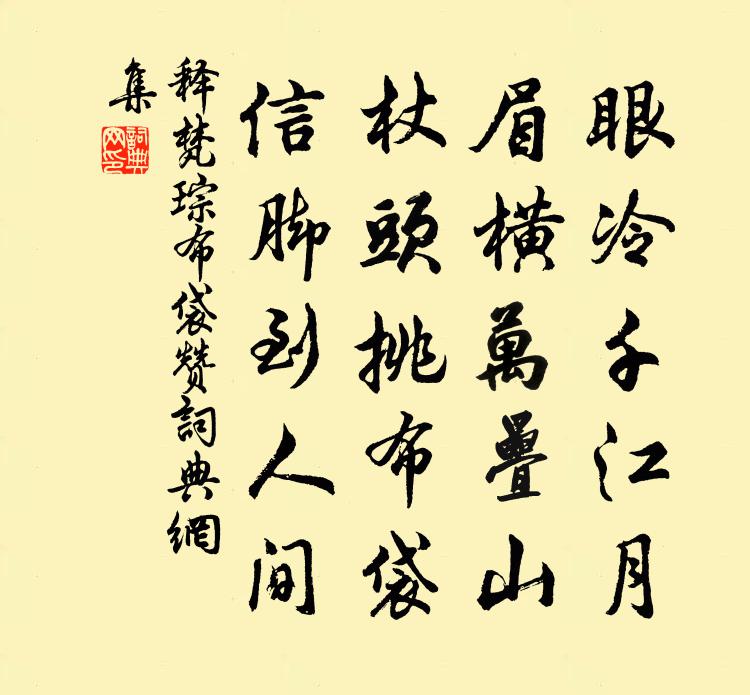 眼冷千江月
眉橫萬疊山
杖頭挑布袋
信脚到人间
释梵琮布袋赞詞典網
集
詞典
网印